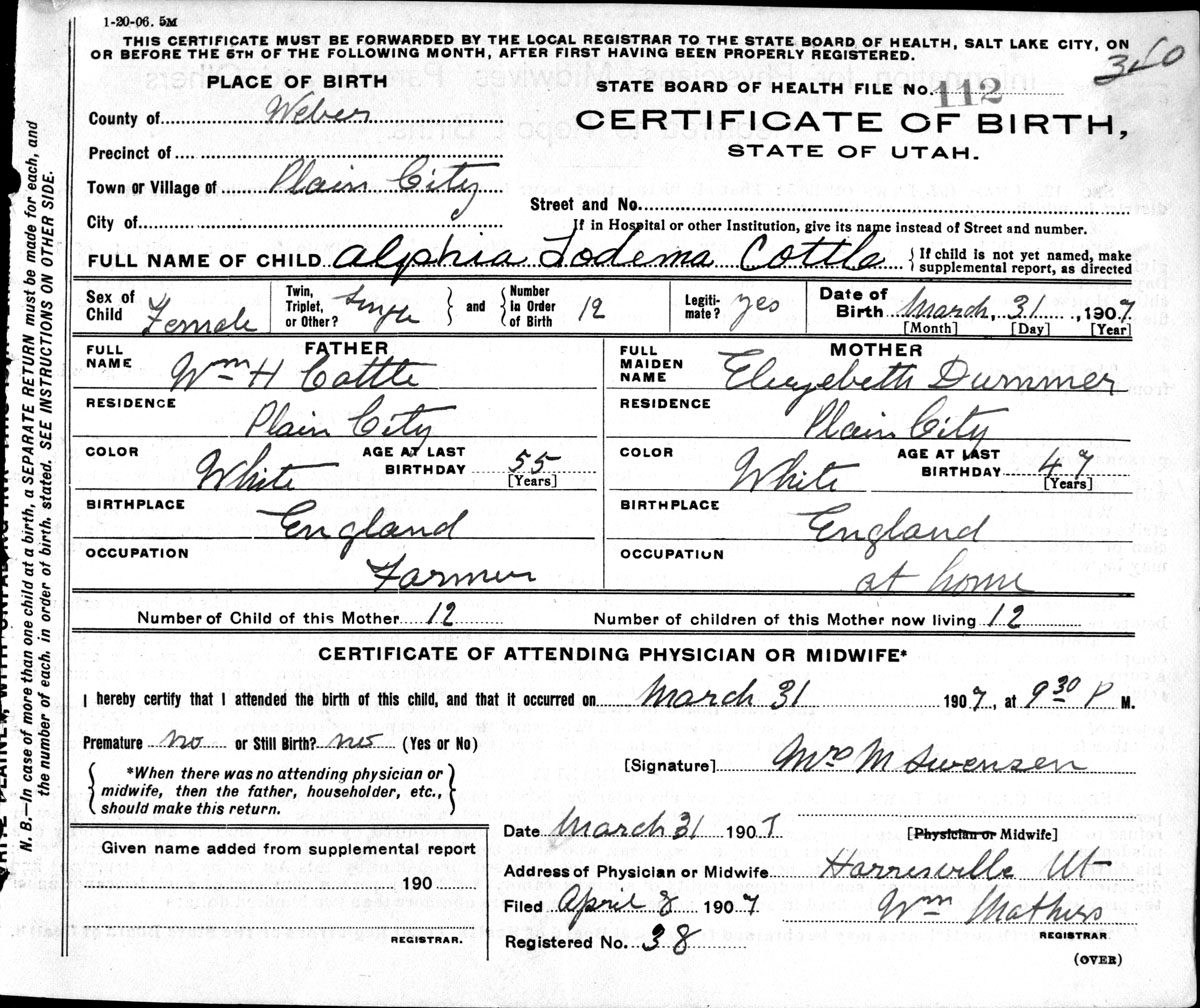 1-20-06. 5M
THIS CERTIFICATE MUST BE FORWARDED BY THE LOCAL REGISTRAR TO THE STATE BOARD OF HEALTH, SALT LAKE CITY, ON
OR BEFORE THE 5TH OF THE FOLLOWING MONTH, AFTER FIRST HAVING BEEN PROPERLY REGISTERED.
PLACE OF BIRTH
County of Weber
Precinct of
Town or Village of Plain City
City of
STATE BOARD OF HEALTH FILE No. 112
CERTIFICATE OF BIRTH,
STATE OF UTAH.
Street and No.
If in Hospital or other Institution, give its name instead of Street and number.
FULL NAME OF CHILD Alphia Lodema Cottle { If child is not yet named, make
supplemental report, as directed
Sex of Child Female
Twin, Triplet, or Other? Single } and { Number in Order of Birth 12
Legiti-mate? yes
Date of Birth March, 31, 1907
[Month] [Day] [Year]
FATHER
FULL NAME Wm H Cottle
RESIDENCE Plain City
COLOR White AGE AT LAST BIRTHDAY 55 [Years]
BIRTHPLACE England
OCCUPATION Farmer
MOTHER
FULL MAIDEN NAME Elizebeth Dummer
RESIDENCE Plain City
COLOR White AGE AT LAST BIRTHDAY 47 [Years]
BIRTHPLACE England
OCCUPATION at home
Number of Child of this Mother 12 Number of children of this Mother now living 12
CERTIFICATE OF ATTENDING PHYSICIAN OR MIDWIFE*
I hereby certify that I attended the birth of this child, and that it occurred on March 31 1907, at 9 30 P M.
Premature no or Still Birth? no (Yes or No)
{ *When there was no attending physician or
midwife, then the father, householder, etc.,
should make this return. }
[Signature] Mrs M Swensen
Date March 31 1907 [Physician or Midwife]
Given name added from supplemental report
190
REGISTRAR.
Address of Physician or Midwife Harrisville Ut
Filed April 8 1907 Wm Mathers
Registered No. 38 REGISTRAR.
(OVER)
N. B.—In case of more than one child at a birth, a SEPARATE RETURN must be made for each, and
the number of each, in order of birth, stated. SEE INSTRUCTIONS ON OTHER SIDE.